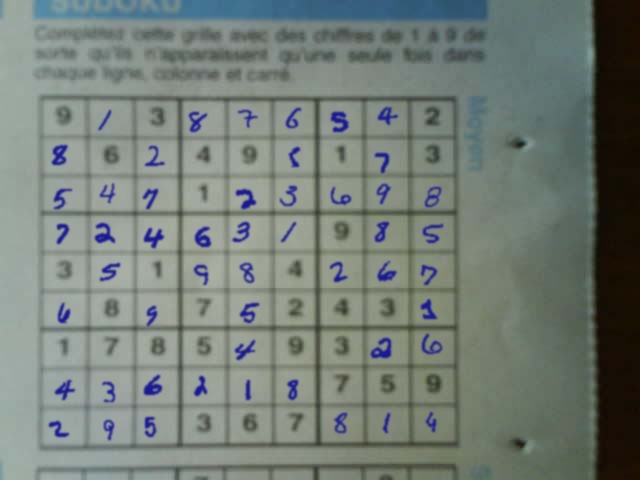 SUDOKU
Complétez cette grille avec des chiffres de 1 à 9 de
sorte qu'ils n'apparaissent qu'une seule fois dans
chaque ligne, colonne et carré.
Moyen
9 1 3 8 7 6 5 4 2
8 6 2 4 9 5 1 7 3
5 4 7 1 2 3 6 9 8
7 2 4 6 3 1 9 8 5
3 5 1 9 8 4 2 6 7
6 8 9 7 5 2 4 3 1
1 7 8 5 4 9 3 2 6
4 3 6 2 1 8 7 5 9
2 9 5 3 6 7 8 1 4